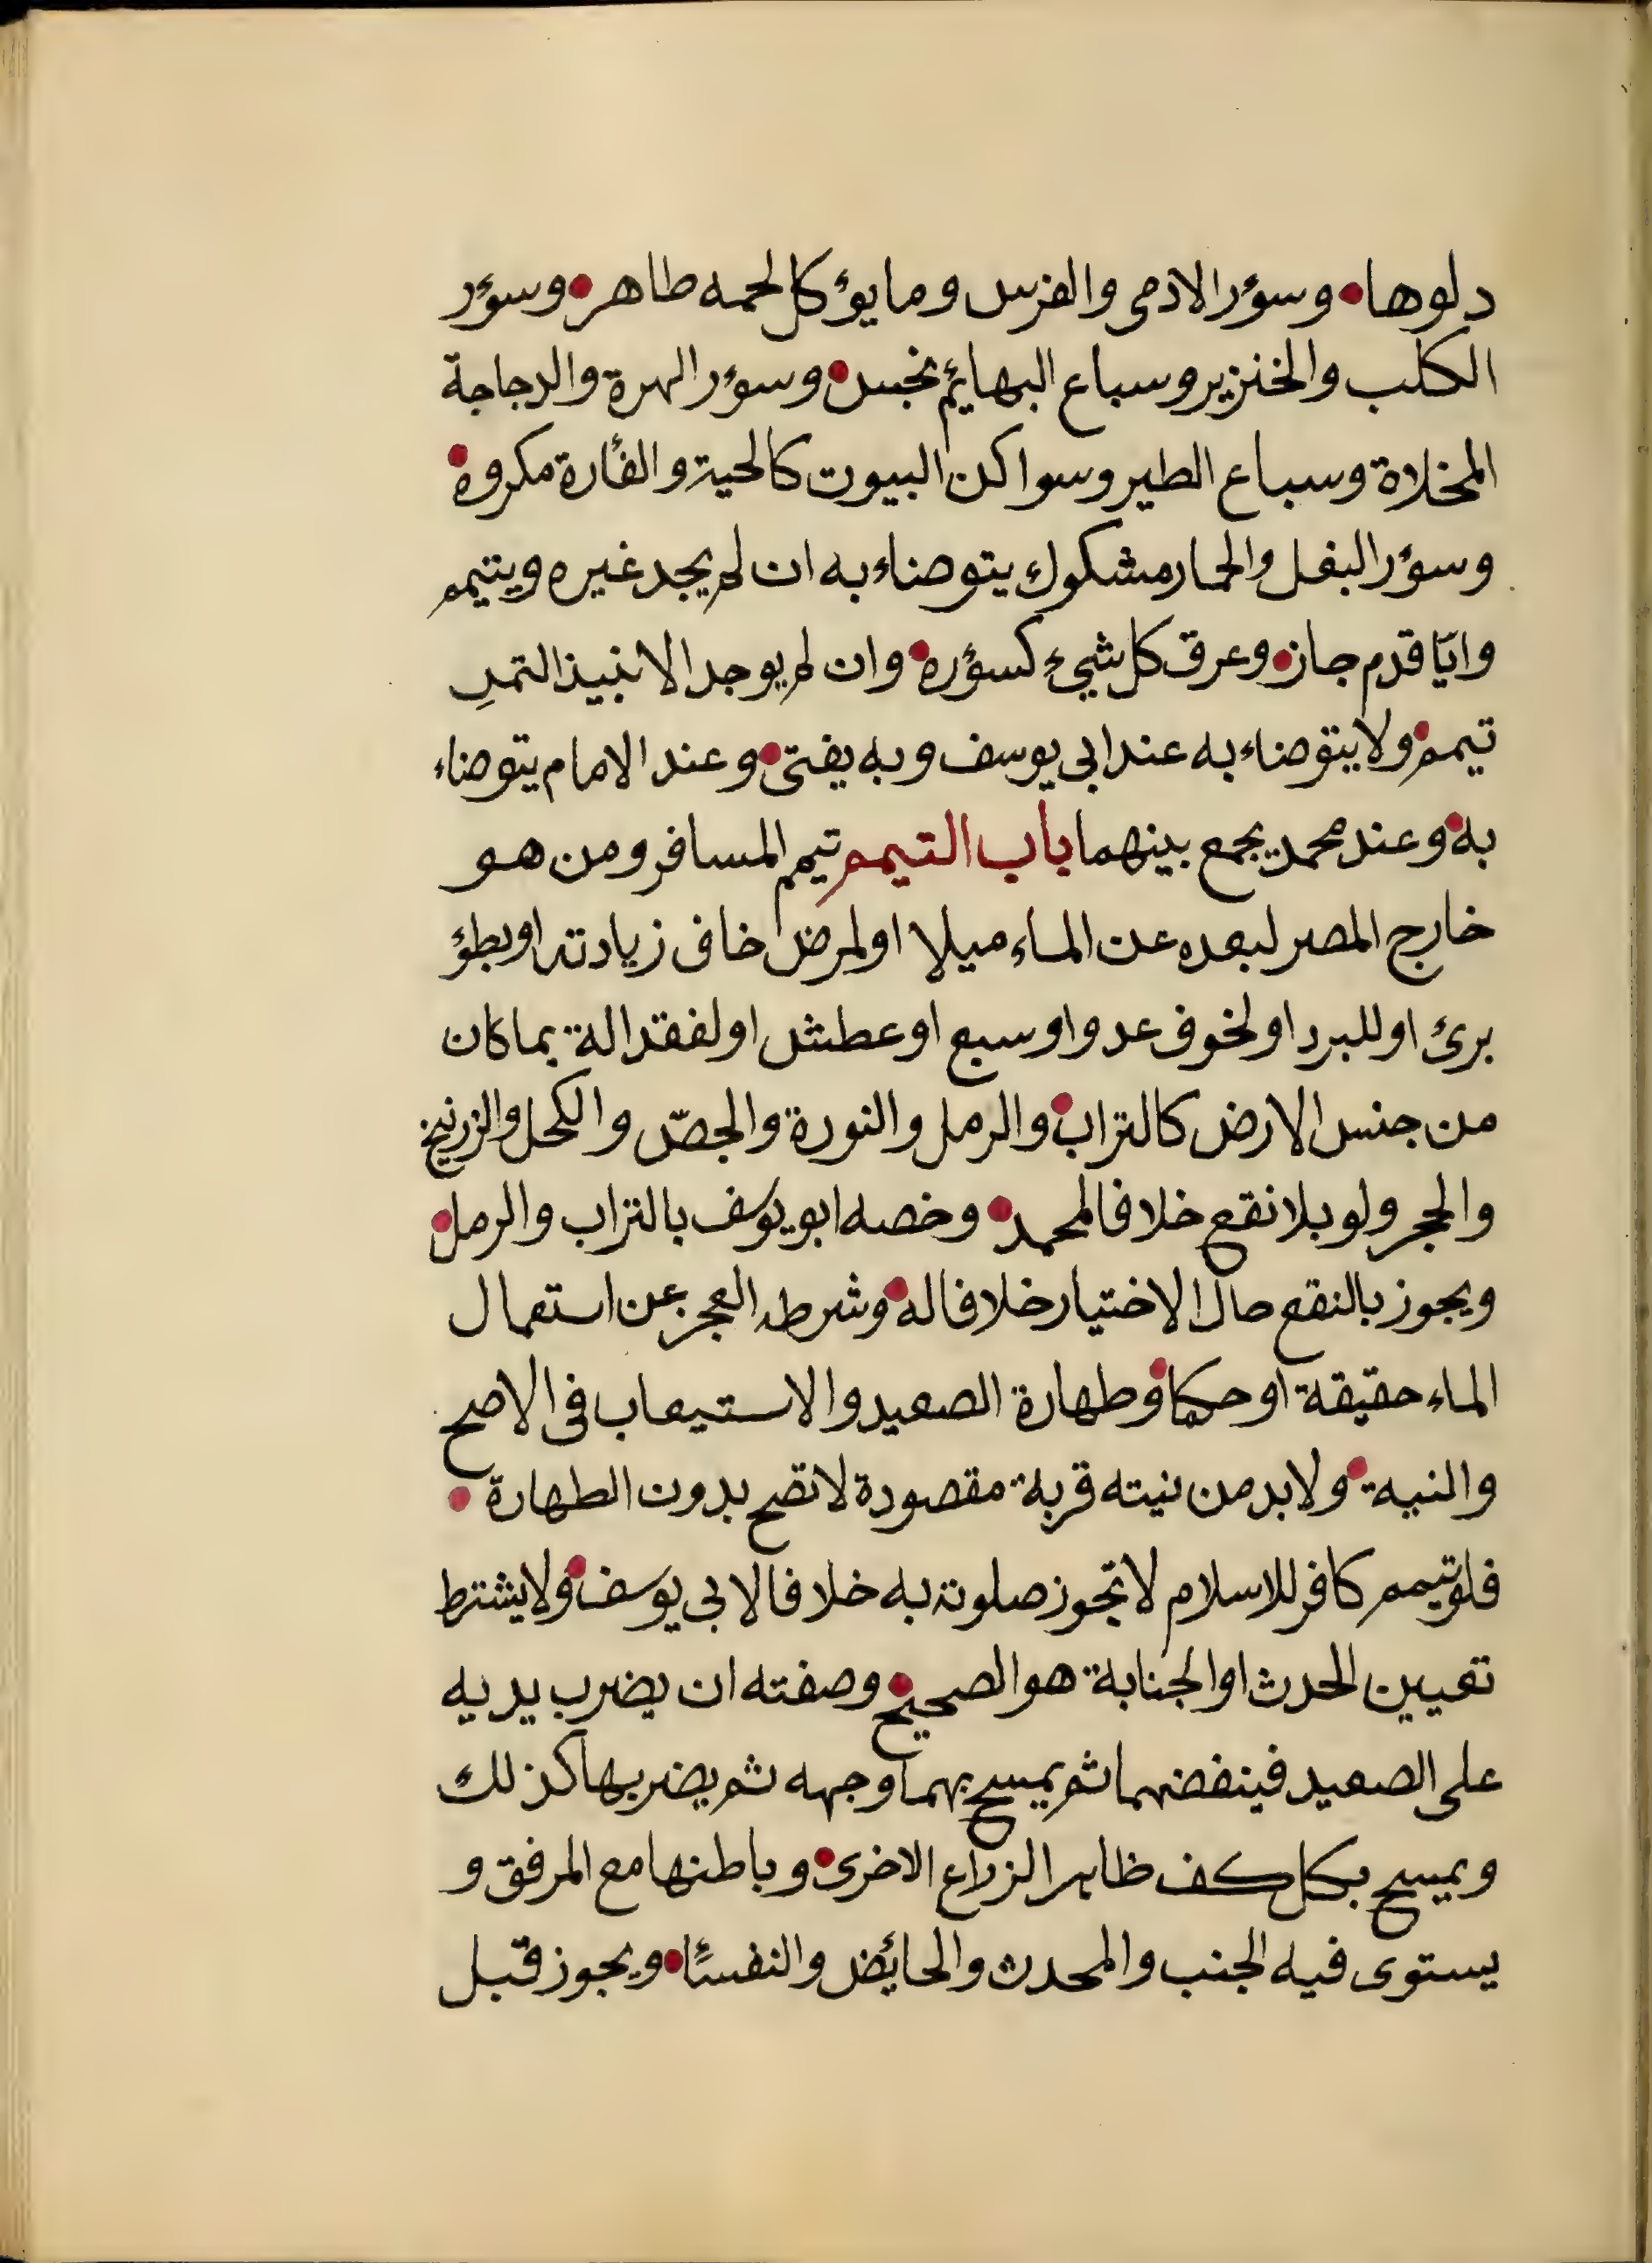 دلوها • وسؤر الادمى والفرس وما يؤكل لحمه طاهر • وسؤر
الكلب والخنزير وسباع البهائم نجس • وسؤر الهرة والدجاجة
المخلاة وسباع الطير وسواكن البيوت كالحية والفأرة مكروه •
وسؤر البغل والحمار مشكوك يتوضاء به ان لم يجد غيره ويتيمم
وايّا قدم جاز • وعرق كل شيء كسؤره • وان لم يوجد الا نبيذ التمر
تيمم • ولا يتوضاء به عند ابى يوسف وبه يفتى • وعند الامام يتوضاء
به • وعند محمد يجمع بينهما باب التيمم تيمم المسافر ومن هو
خارج المصر لبعده عن الماء ميلا او لمرض خاف زيادته او بطؤ
برئ او للبرد او لخوف عدو او سبع او عطش او لفقد الة بما كان
من جنس الارض كالتراب • والرمل والنورة والجصّ والكحل والزرنيخ
والحجر ولو بلا نقع خلافا لمحمد • وخصه ابو يوسف بالتراب والرمل •
ويجوز بالنقع حال الاختيار خلافا له • وشرطه العجز عن استعمال
الماء حقيقة او حكما • وطهارة الصعيد والاستيعاب فى الاصح
والنية • ولا بد من نيته قربة مقصودة لا تصح بدون الطهارة •
فلو تيمم كافر للاسلام لا تجوز صلوته به خلافا لابى يوسف • ولا يشترط
تعيين الحدث او الجنابة هو الصحيح • وصفته ان يضرب يديه
على الصعيد فينفضهما ثم يمسح بهما وجهه ثم يضربها كذلك
ويمسح بكل كف ظاهر الزراع الاخرى • وباطنها مع المرفق و
يستوى فيه الجنب والمحدث والحائض والنفسأ • ويجوز قبل